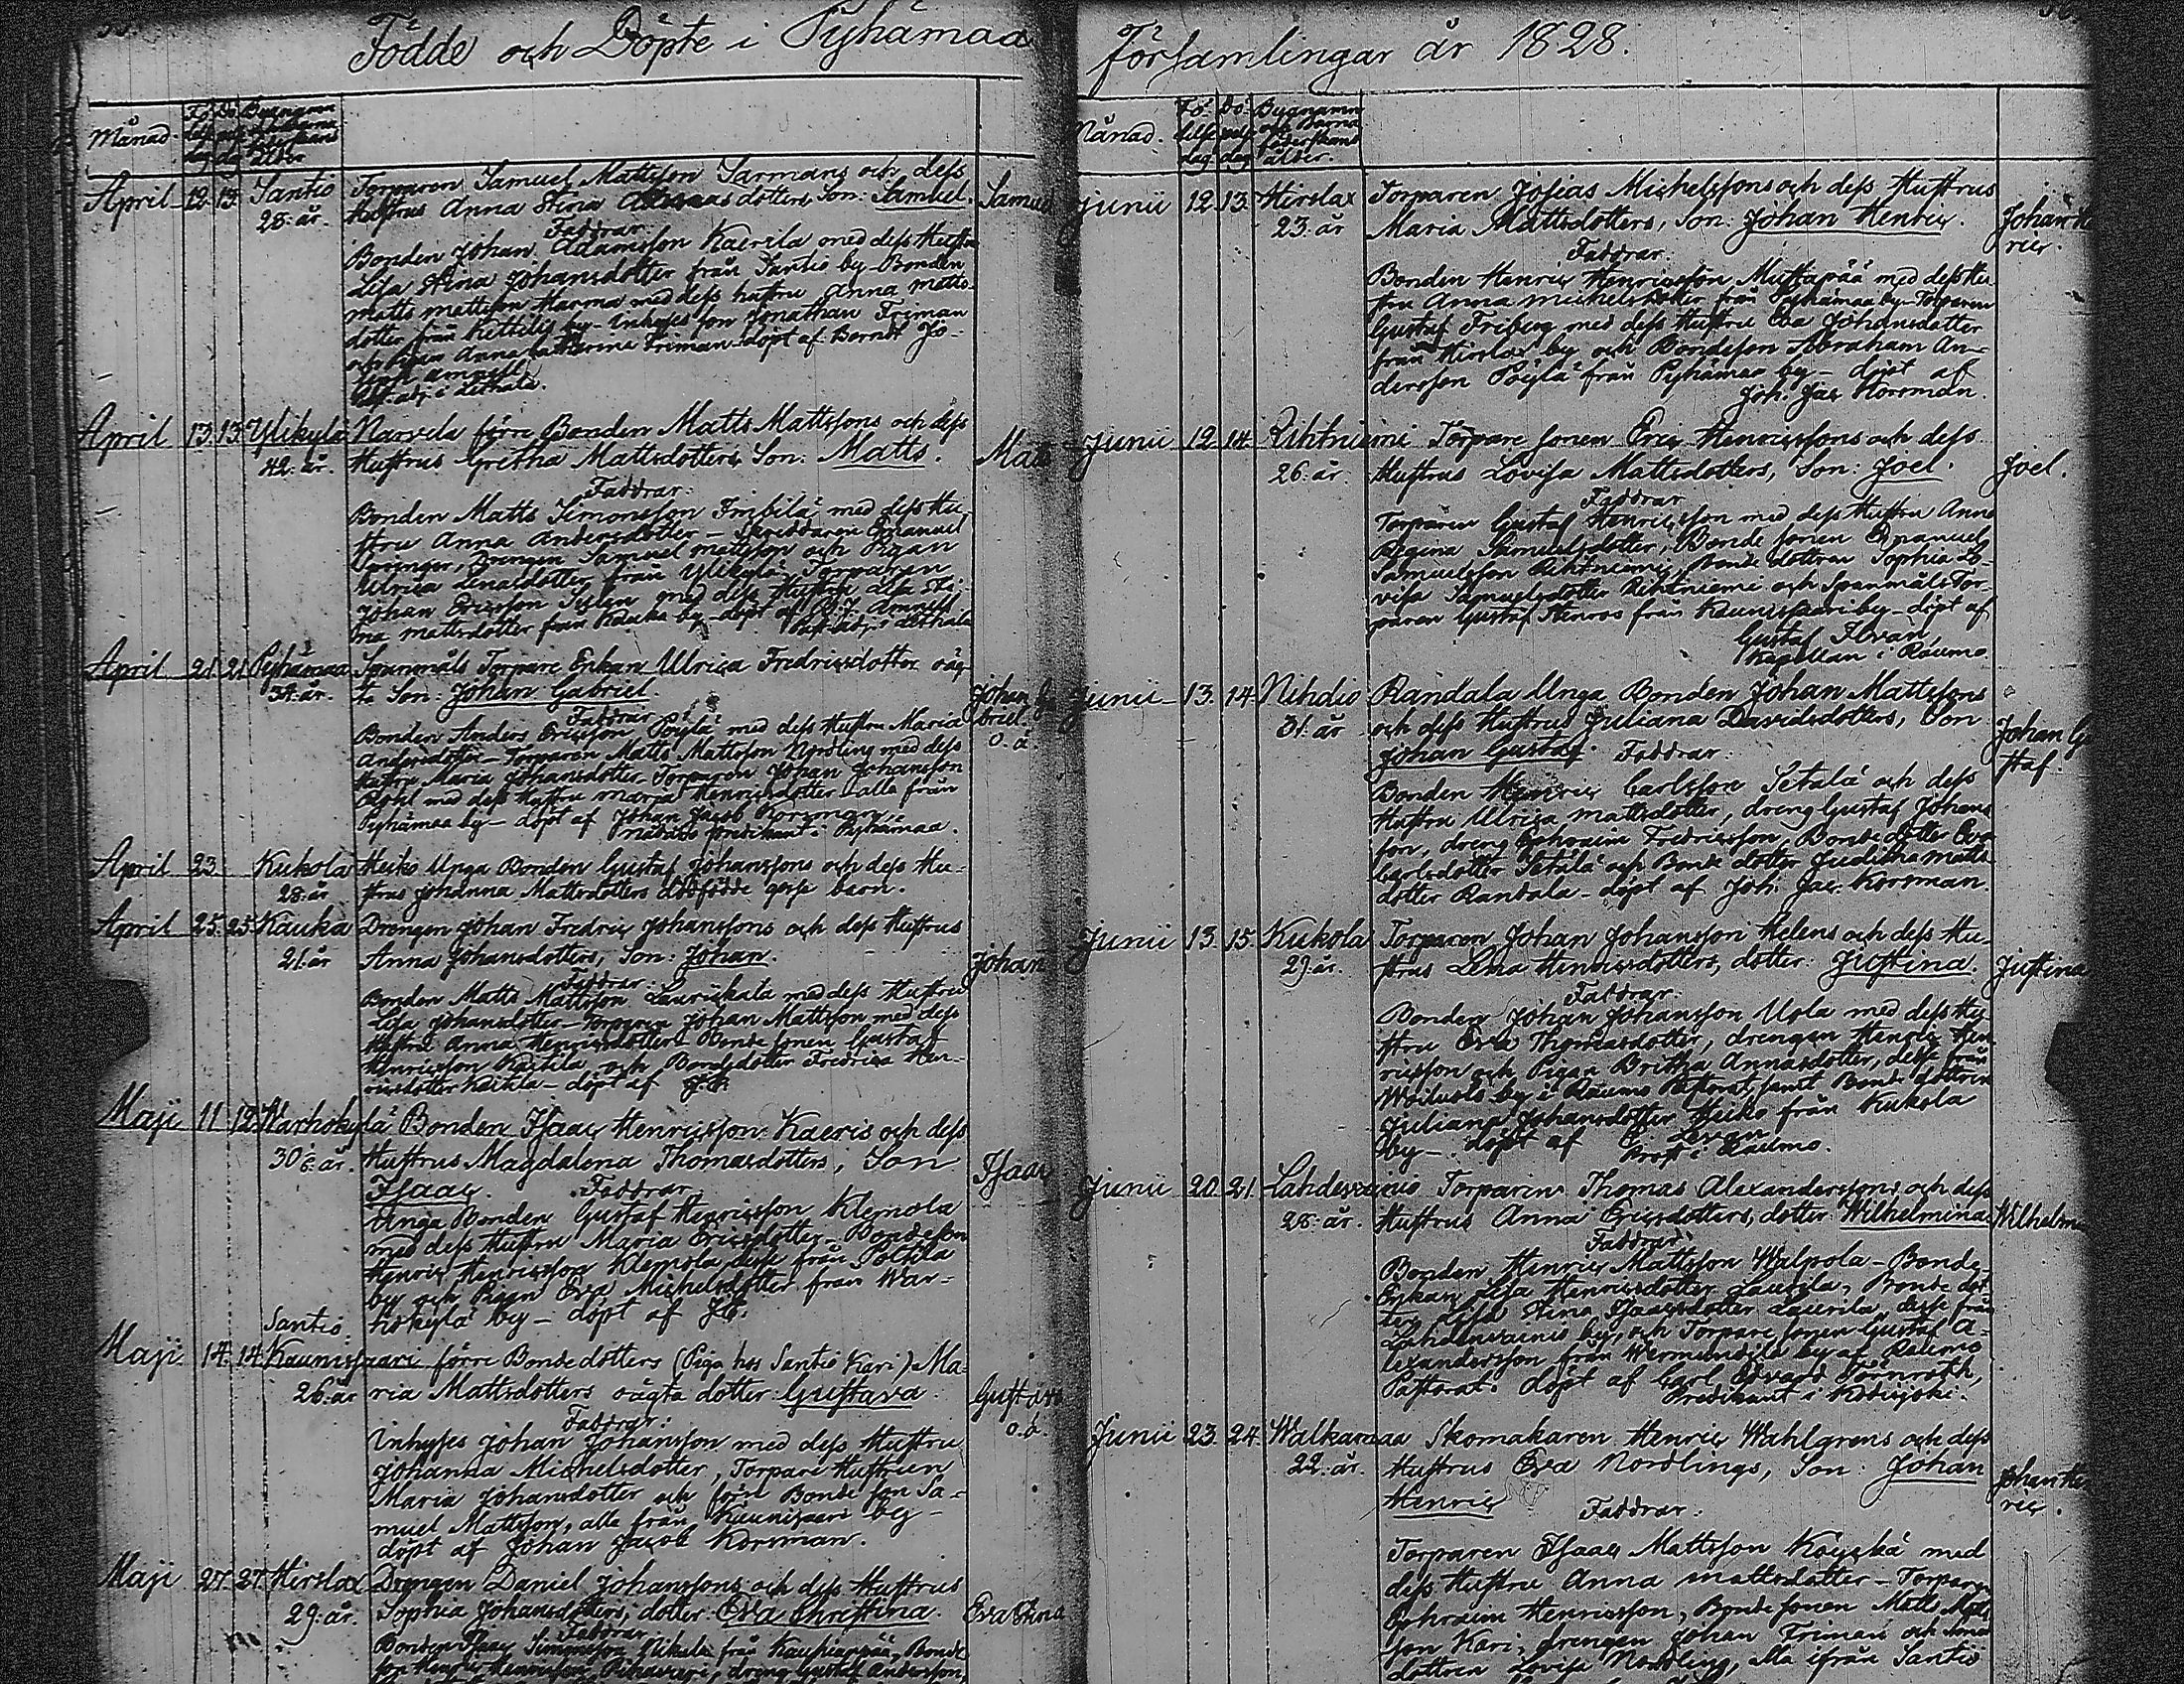 Födde och Döpte i Pyhämaa
Månad.
April 12. 13. Santio Torparen Samuel Mattsson Sarmans och dess
28. år. Hustrus Anna Stina dotters Son: Samuel. Samuel
Faddrar.
Bonden Johan Adamsson Kaerila med dess Hustru
Lisa Stina Johansdotter från Santio by - Bonden
Matts Mattsson Harma med dess hustru Anna Matts-
dotter från by - Inhyses son Jonathan Friman
och Pigan Anna Catharina Friman - döpt af Berndt Jo-
April 13. 13. Ylikylä Narvila förre Bonden Matts Mattssons och dess
42. år. Hustrus Gretha Mattsdotters Son: Matts. Matts
Faddrar.
Bonden Matts Simonsson med dess Hu-
stru Anna Andersdotter - Skräddaren Emanuel
Sprenger, Drengen Samuel Mattsson och Pigan
Ulrica Lenasdotter från Ylikylä Torparen
Johan Ericsson Selen med dess Hustru Lisa Sti-
na Mattsdotter från Kauka by - döpt af
April 21. 21. Pyhämaa Spanmåls Torpare Enkan Ulrica Fredricsdotter oäg-
34. år. ta Son: Johan Gabriel. Johan Ga
Faddrar briel.
o. ä.
Bonden Anders Ericsson Pöylä med dess Hustru Maria
Andersdotter - Torparen Matts Mattsson Nordling med dess
Hustru Maria Johansdotter Torparen Johan Johansson
med dess Hustru Maria Henricsdotter alla från
Pyhämaa by - döpt af Johan Jacob Korsman,
Predikant i Pyhämaa.
April 23 Kukola Heiko Unga Bonden Gustaf Johanssons och dess Hu-
28. år strus Johanna Mattsdotters dödfödde gosse barn.
April 25. 25. Kauka Drengen Johan Fredric Johanssons och dess Hustrus
21. år Anna Johansdotters, Son: Johan. Johan
Faddrar.
Bonden Matts Mattsson Laurikala med dess Hustru
Lisa Johansdotter - Torparen Johan Mattsson med dess
Hustru Anna Henricsdotter Bonde sonen Gustaf
Henricsson Kästilä och Bondedotter Fredrica Hen-
ricsdotter Kästilä - döpt af
Maji 11 12. Warhokylä Bonden Isaac Henricsson Kaeris och dess
30. år. Hustrus Magdalena Thomasdotters, Son Isaac
Isaac. Faddrar
Unga Bonden Gustaf Henricsson Klemola
med dess Hustru Maria Ericsdotter - Bondeson
Henric Henricsson Klemola, desse från
by och Pigan Eva Michelsdotter från War-
hokylä by - döpt af
Santio
Maji 14. 14. Kaunissaari förre Bonde dotters (Piga hos Santio Kari) Ma-
26. år ria Mattsdotters oägta dotter: Gustava. Gustava
o. ä.
Faddrar:
Inhyses Johan Johansson med dess Hustru
Johanna Michelsdotter, Torpare Hustrun
Maria Johansdotter och förre Bonde son Sa-
muel Mattsson, alla från Kaunissaari by -
döpt af Johan Jacob Korsman.
Maji 27. 27. Hirslax Drengen Daniel Johanssons och dess Hustrus
29. år. Sophia Johansdotters, dotter: Eva Christina. Eva Stina
Faddrar
Bonden Isaac Simonsson från Kaukianpää, Bonde
son Henric Henricsson, dreng Gustaf Andersson,
Församlingar år 1828.
Månad. Fö- delse dag Dö- pelse dag Bygnamn och Barna föderskans ålder.
Junii 12. 13. Hirslax Torparen Josias Michelssons och dess Hustrus
23. år Maria Mattsdotters, Son: Johan Henric. Johan Hen
ric.
Faddrar.
Bonden Henric Henricsson Mustapää med dess Hu-
stru Anna Michelsdotter från Pyhämaa by - Torparen
Gustaf Friberg med dess Hustru Eva Johansdotter
från Hirslax by och Bondeson Abraham An-
dersson Pöylä från Pyhämaa by - döpt af
Joh. Jac. Korsman.
Junii 12. 14. Rihtniemi Torpare sonen Eric Henricssons och dess
26. år. Hustrus Lovisa Mattsdotters, Son: Joel. Joel.
Faddrar
Torparen Gustaf Henricsson med dess Hustru Anna
Regina Samuelsdotter, Bonde sonen Emanuel
Samuelsson Rihtniemi, Bonde dottren Sophia Lo-
visa Samuelsdotter Rihtniemi och Spanmåls Tor-
paren Gustaf Stenroos från Kaunissaari by - döpt af
Gustaf
Kapellan i Raumo
Junii 13. 14. Nihdio Randala Unga Bonden Johan Mattssons
31. år och dess Hustrus Juliana Davidsdotters, Son
Johan Gustaf. Faddrar: Johan Gu
staf.
Bonden Henric Carlsson Setälä och dess
Hustru Ulrica Mattsdotter, dreng Gustaf Johans
son, dreng Ephraim Fredricsson, Bonde dotter Eva
Carlsdotter Setälä och Bonde dotter Juditha Matts-
dotter Randala - döpt af Joh. Jac. Korsman.
Junii 13. 15. Kukola Torparen Johan Johansson Helens och dess Hu-
29. år. strus Lena Henricsdotters, dotter: Justina. Justina
Faddrar.
Bonden Johan Johansson Uola med dess Hu-
stru Eva Thomasdotter, drengen Henric Hen
ricsson och Pigan Britha Annasdotter, desse från
by i Raumo Pastorat, samt Bonde dottren
Juliana Johansdotter Heiko från Kukola
by - döpt af
Prost i Raumo.
Junii 20. 21. Torparen Thomas Alexanderssons och dess
28. år. Hustrus Anna Ericsdotters, dotter: Wilhelmina Wilhelmi
Faddrar.
Bonden Henric Mattsson Walpola - Bonde-
Enkan Lisa Henricsdotter Laurila, Bonde dot-
ter Lisa Stina Isaacsdotter Laurila, desse från
by, och Torpare sonen Gustaf A-
lexandersson från Wermundila by af Raumo
Pastorat. döpt af Carl Edvard Törnroth,
Predikant i
Junii 23. 24. Walkamaa Skomakaren Henric Wahlgrens och dess
22. år. Hustrus Eva Nordlings, Son: Johan Johan Hen
Henric Faddrar. ric.
Torparen Isaac Mattsson Köyskä med
dess Hustru Anna Mattsdotter - Torparen
Ephraim Henricsson, Bonde sonen Matts Matts
son Kari, drengen Johan Friman och
dottren Lovisa Nordling, alla ifrån Santio